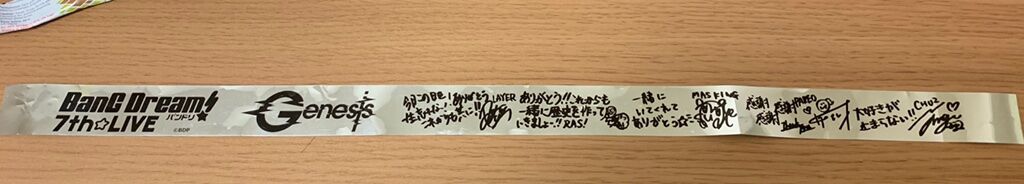 BanG Dream!
バンドリ!
7th☆LIVE
©BDP
Genesis
今日この日を!ありがとう
LAYER
ありがとう!!これからも
一緒に歴史を作って
いきましょー!! RAS!
一緒に
いてくれて
ありがとう☆
MASKING
感謝
感謝
PAREO
大好きが
止まらない!!
CHU2